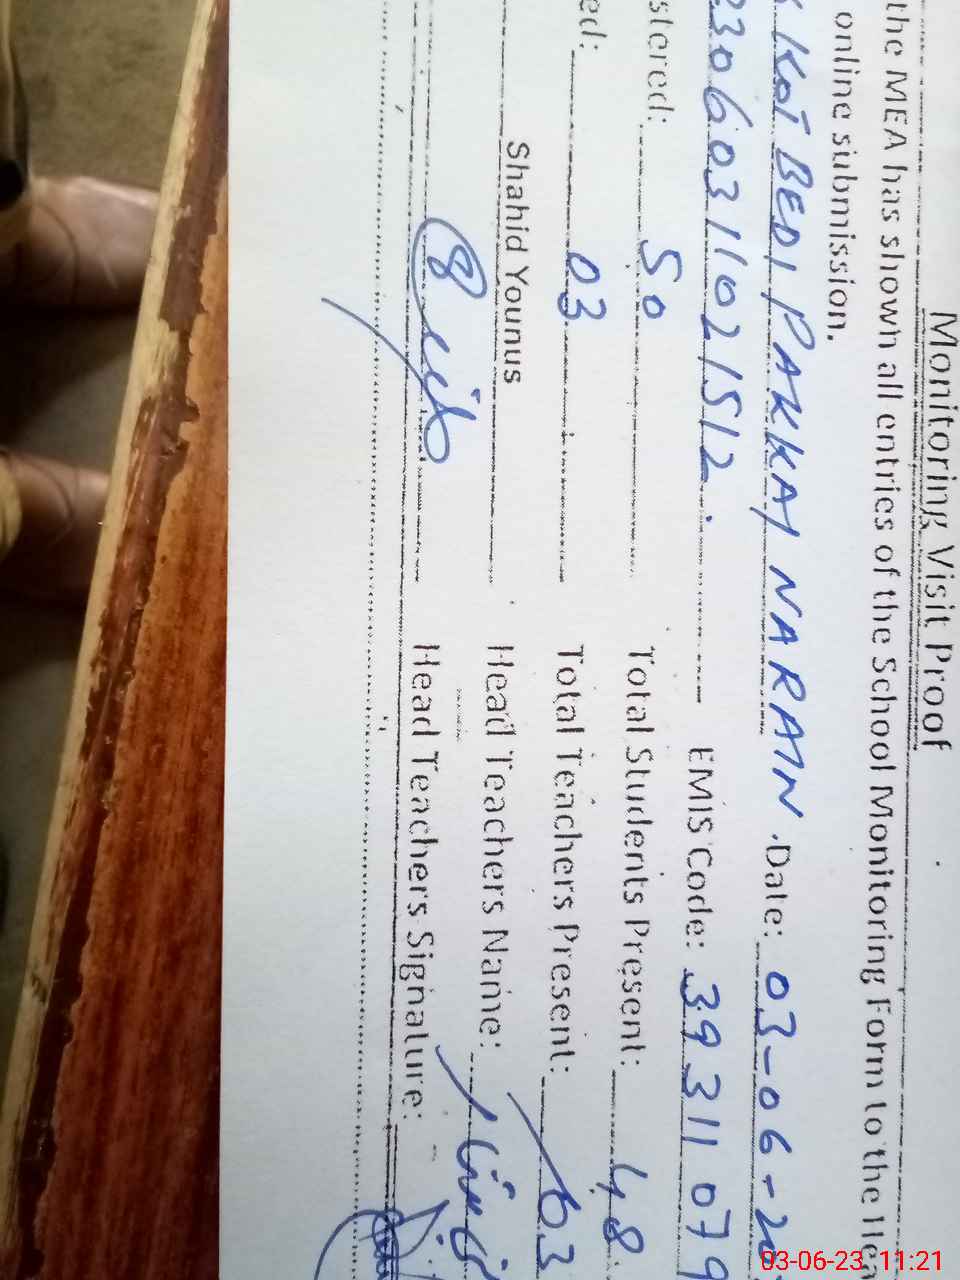 Monitoring Visit Proof
the MEA has shown all entries of the School Monitoring Form to the Hea
online submission.
KOT BEDI PAKKAI NARAIN. Date: 03-06-20
23060311021512. EMIS Code: 39311079
stered: 50 Total Students Present: 48
ed: 03 Total Teachers Present: 03
Shahid Younus Head Teachers Name:
Head Teachers Signature:
03-06-23 11:21